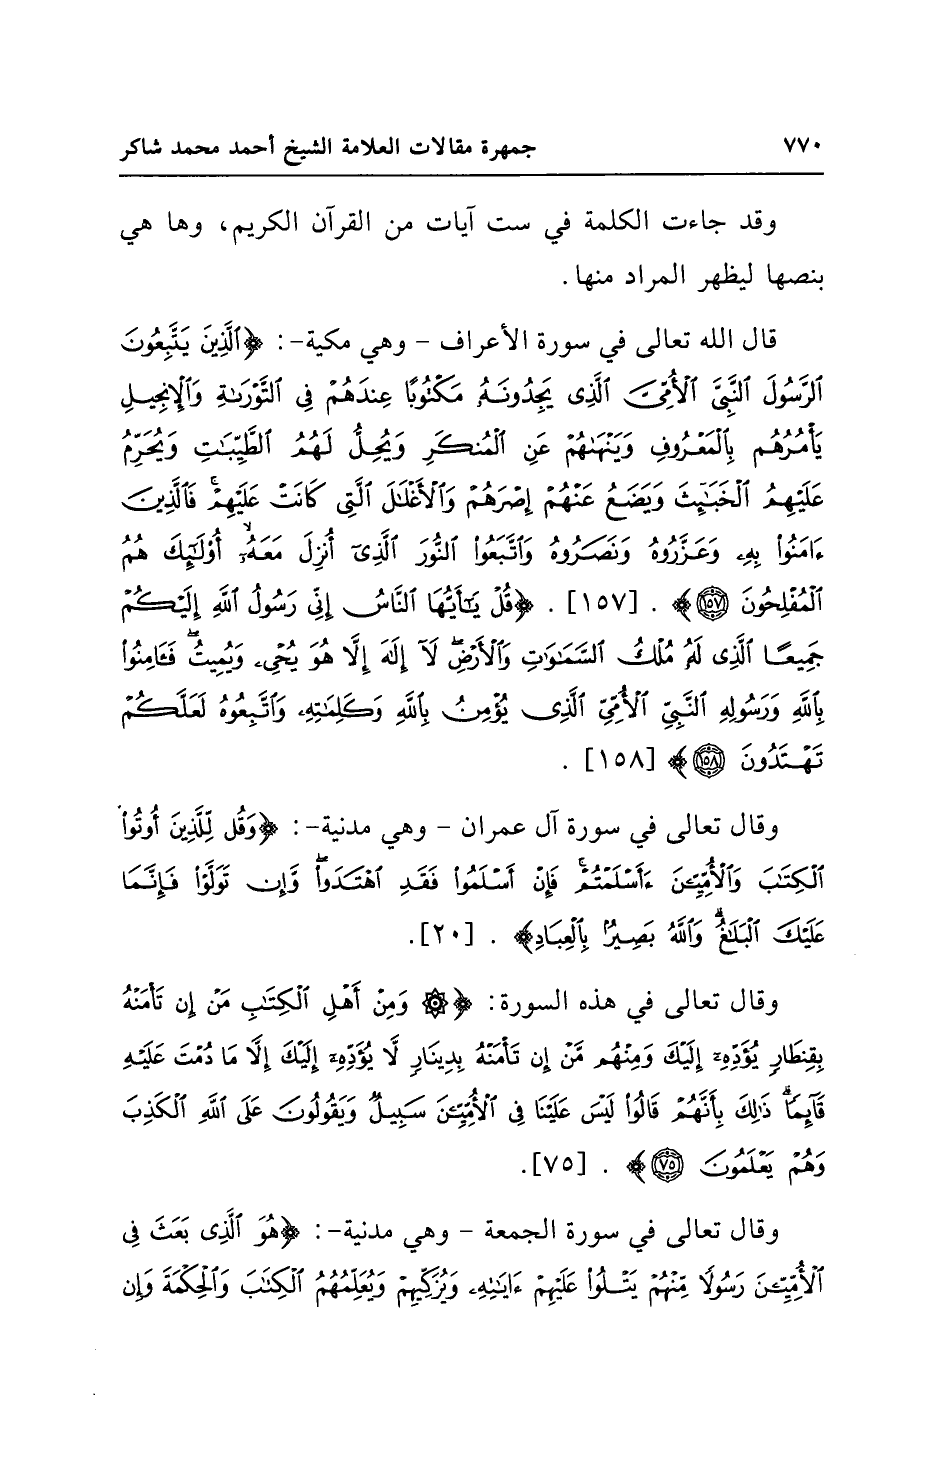 ٧٧٠ جمهرة مقالات العلامة الشيخ أحمد محمد شاكر
وقد جاءت الكلمة في ست آيات من القرآن الكريم، وها هي
بنصها ليظهر المراد منها.
قال الله تعالى في سورة الأعراف - وهي مكية-: ﴿ٱلَّذِينَ يَتَّبِعُونَ
ٱلرَّسُولَ ٱلنَّبِىَّ ٱلْأُمِّىَّ ٱلَّذِى يَجِدُونَهُۥ مَكْتُوبًا عِندَهُمْ فِى ٱلتَّوْرَىٰةِ وَٱلْإِنجِيلِ
يَأْمُرُهُم بِٱلْمَعْرُوفِ وَيَنْهَىٰهُمْ عَنِ ٱلْمُنكَرِ وَيُحِلُّ لَهُمُ ٱلطَّيِّبَٰتِ وَيُحَرِّمُ
عَلَيْهِمُ ٱلْخَبَٰٓئِثَ وَيَضَعُ عَنْهُمْ إِصْرَهُمْ وَٱلْأَغْلَٰلَ ٱلَّتِى كَانَتْ عَلَيْهِمْ ۚ فَٱلَّذِينَ
ءَامَنُوا۟ بِهِۦ وَعَزَّرُوهُ وَنَصَرُوهُ وَٱتَّبَعُوا۟ ٱلنُّورَ ٱلَّذِىٓ أُنزِلَ مَعَهُۥٓ ۙ أُو۟لَٰٓئِكَ هُمُ
ٱلْمُفْلِحُونَ ١٥٧﴾ . [١٥٧] . ﴿قُلْ يَٰٓأَيُّهَا ٱلنَّاسُ إِنِّى رَسُولُ ٱللَّهِ إِلَيْكُمْ
جَمِيعًا ٱلَّذِى لَهُۥ مُلْكُ ٱلسَّمَٰوَٰتِ وَٱلْأَرْضِ ۖ لَآ إِلَٰهَ إِلَّا هُوَ يُحْىِۦ وَيُمِيتُ ۖ فَـَٔامِنُوا۟
بِٱللَّهِ وَرَسُولِهِ ٱلنَّبِىِّ ٱلْأُمِّىِّ ٱلَّذِى يُؤْمِنُ بِٱللَّهِ وَكَلِمَٰتِهِۦ وَٱتَّبِعُوهُ لَعَلَّكُمْ
تَهْتَدُونَ ١٥٨﴾ [١٥٨] .
وقال تعالى في سورة آل عمران - وهي مدنية-: ﴿وَقُل لِّلَّذِينَ أُوتُوا۟
ٱلْكِتَٰبَ وَٱلْأُمِّيِّـۧنَ ءَأَسْلَمْتُمْ ۚ فَإِنْ أَسْلَمُوا۟ فَقَدِ ٱهْتَدَوا۟ ۖ وَّإِن تَوَلَّوْا۟ فَإِنَّمَا
عَلَيْكَ ٱلْبَلَٰغُ ۗ وَٱللَّهُ بَصِيرٌۢ بِٱلْعِبَادِ﴾ . [٢٠].
وقال تعالى في هذه السورة: ﴿۞ وَمِنْ أَهْلِ ٱلْكِتَٰبِ مَنْ إِن تَأْمَنْهُ
بِقِنطَارٍ يُؤَدِّهِۦٓ إِلَيْكَ وَمِنْهُم مَّنْ إِن تَأْمَنْهُ بِدِينَارٍ لَّا يُؤَدِّهِۦٓ إِلَيْكَ إِلَّا مَا دُمْتَ عَلَيْهِ
قَآئِمًا ۗ ذَٰلِكَ بِأَنَّهُمْ قَالُوا۟ لَيْسَ عَلَيْنَا فِى ٱلْأُمِّيِّـۧنَ سَبِيلٌ وَيَقُولُونَ عَلَى ٱللَّهِ ٱلْكَذِبَ
وَهُمْ يَعْلَمُونَ ٧٥﴾ . [٧٥].
وقال تعالى في سورة الجمعة - وهي مدنية-: ﴿هُوَ ٱلَّذِى بَعَثَ فِى
ٱلْأُمِّيِّـۧنَ رَسُولًا مِّنْهُمْ يَتْلُوا۟ عَلَيْهِمْ ءَايَٰتِهِۦ وَيُزَكِّيهِمْ وَيُعَلِّمُهُمُ ٱلْكِتَٰبَ وَٱلْحِكْمَةَ وَإِن